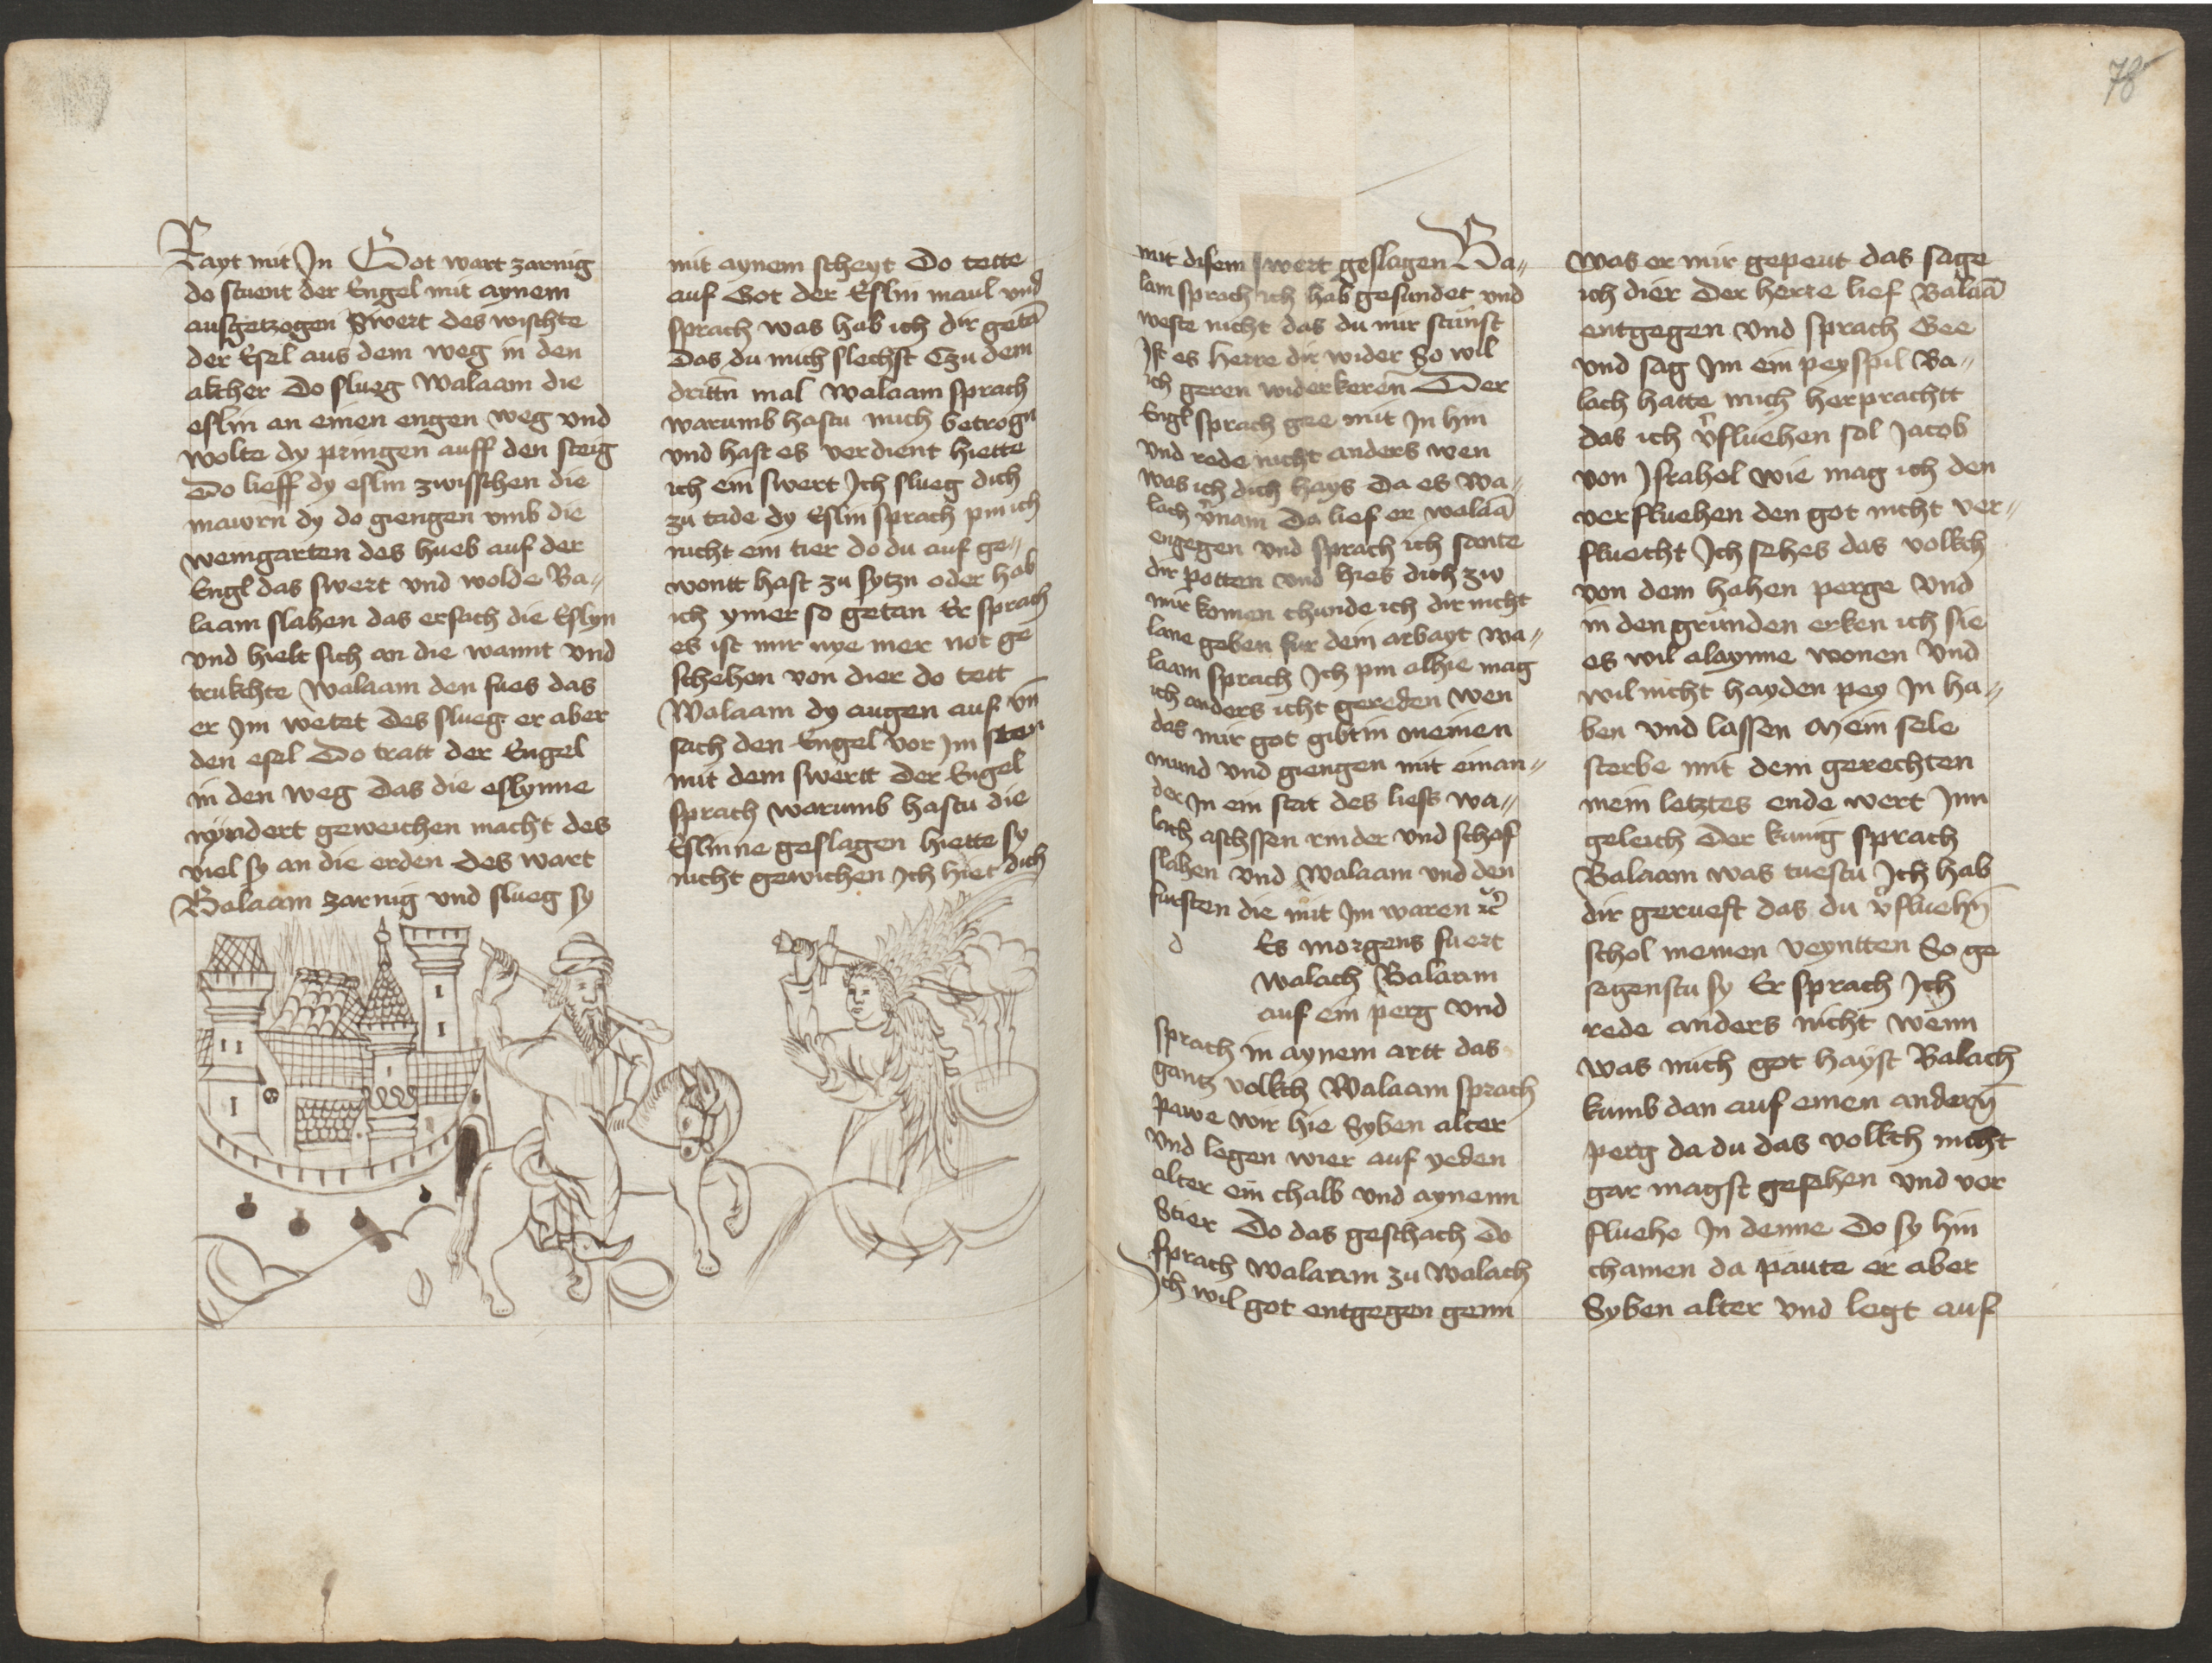 Rayt mit Jn Got wart zarnig
do stuent der Engel mit aynem
ausgetzogen Swert des wischte
der Esel aus dem weg in den
akcher Do slueg Walaam die
eslin an einen engen weg vnd
wolte dy pringen auff den steig
Do lieff dy eslin zwisschen die
mawrn dy do giengen vmb die
weingarten des hueb auf der
Engl das swert vnd wolde Ba〃
laam slahen das ersach die Eslyn
vnd hielt sich an die wannt vnd
trukchte Walaam den fues das
er Jm wetet Des slueg er aber
den esel Do tratt der Engel
in den weg Das die eslynne
nyndert geweichen macht des
viel sy an die erden des wart
Balaam zarnig vnd slueg sy
mit aynem scheyt Do tette
auf Got der Eslin maul vnd
sprach was hab ich dir getā
Das du mich slechst Czu dem
drittn̄ mal Walaam sprach
warumb hastu mich betrogn
vnd hast es verdient hiette
ich ein swert Jch slueg dich
zu tade dy Eslin sprach pin ich
nicht ein tier do du auf ge〃
wontt hast zu sytzn oder hab
ich ymer so getan Er sprach
es ist mir nye mer not ge
schehen von dier do tett
Walaam dy augen auf vn̄
sach den Engel vor Jm sten
mit dem swertt Der Engel
sprach warumb hastu die
Eslinne geslagen hiette sy
nicht gewichen Jch hiet dich
78
mit disem swert geslagen Ba〃
lam sprach ich hab gesundet vnd
weste nicht das du mir stünst
Jst es herre dir wider So wil
ich geren widerkeren Der
Engl sprach gee mit Jn hin
vnd rede nicht anders wen
was ich dich hays Da es Wa〃
lach v̾nam Da lief er walaā
engegen vnd sprach ich sante
dir potten vnd hies dich zw
mir komen chunde ich dir nicht
lone geben fur dein arbayt Wa〃
laam sprach Jch pin alhie mag
ich anders icht gereden wen
das mir got gibt in meinen
mund vnd giengen mit einan〃
der Jn ein stat des lies wa〃
lach aschssen rinder vnd schof
slahen vnd Walaam vnd den
fursten die mit Jm waren ꝛc̾
d Es morgens fuert
walach Balaam
auf ein perg vnd
sprach in aynem artt das
gantz volkch Walaam sprach
pawe wir hie Syben alter
vnd legen wier auf yeden
alter ein chalb vnd aynenn
Stier Do das geschach do
sprach walaam zu Walach
Jch wil got entgegen genn
was er mir gepeut das sage
ich dier Der herre lief Balaā
entgegen vnd sprach Gee
vnd sag Jm ein peyspil Ba〃
lach hatte mich herprachtt
das ich v̾fluehen sol Jacob
von Jsrahel wie mag ich den
verfluehen den got nicht ver〃
fluecht Jch sehes das volkch
von dem hohen perge vnd
in den grunden erken ich sie
es wil alaynne wonen vnd
wil nicht hayden pey Jn ha〃
ben vnd lassen Mein sele
sterbe mit dem gerechten
mein letztes ende wert Jnn
geleich Der kunig sprach
Balaam was tuestu Jch hab
dir gerueft das du v̾fluehn̄
schol meinen veyntten So ge
segenstu sy Er sprach Jch
rede anders nicht wenn
was mich got hayst Balach
kumb dan auf einen andern̄
perg da du das volkch nicht
gar magst gesehen vnd ver
fluehe Jn denne Do sy hin
chamen da paute er aber
Syben alter vnd legt auf